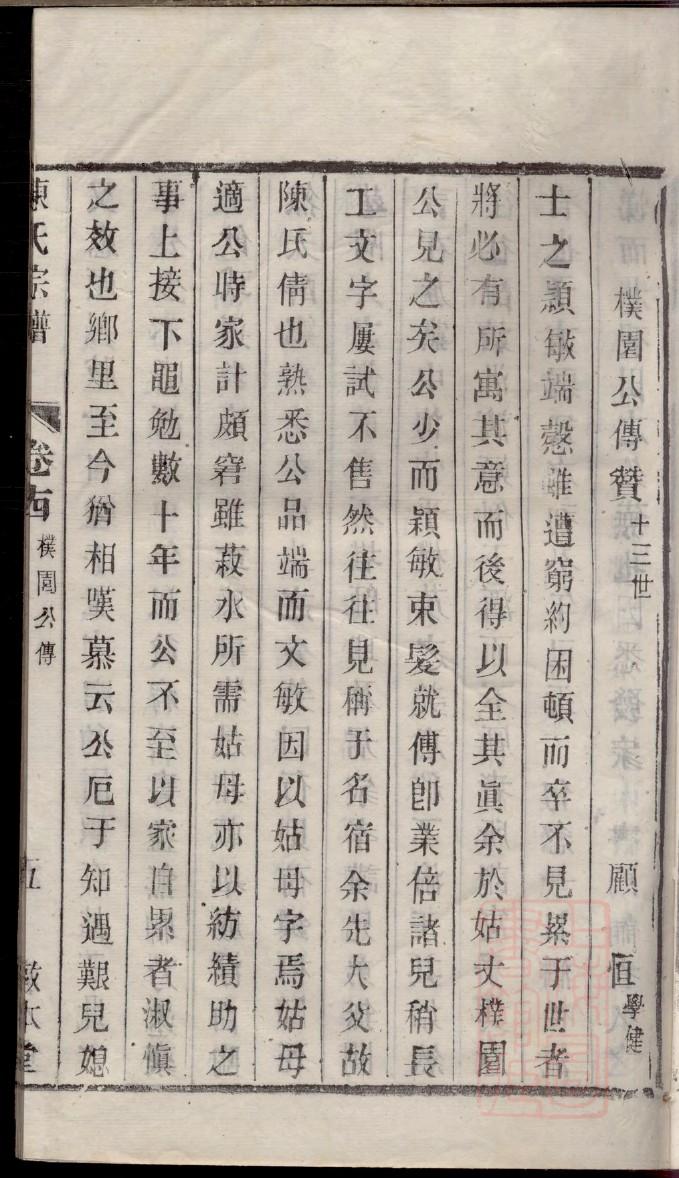 樸園公傳贊 十三世 顧恒 學健
士之顥敏端慤雖遭窮約困頓而卒不見累于世者
將必有所寓其意而後得以全其眞余於姑丈樸園
公見之矣公少而穎敏束髮就傅卽業倍諸兒稍長
工文字屢試不售然往往見稱于名宿余先大父故
陳氏倩也熟悉公品端而文敏因以姑母字焉姑母
適公時家計頗窘雖菽水所需姑母亦以紡績助之
事上接下黽勉數十年而公不至以家自累者淑愼
之效也鄉里至今猶相嘆慕云公厄于知遇艱兒媳
陳氏宗譜 卷 樸園公傳 五 敦本堂